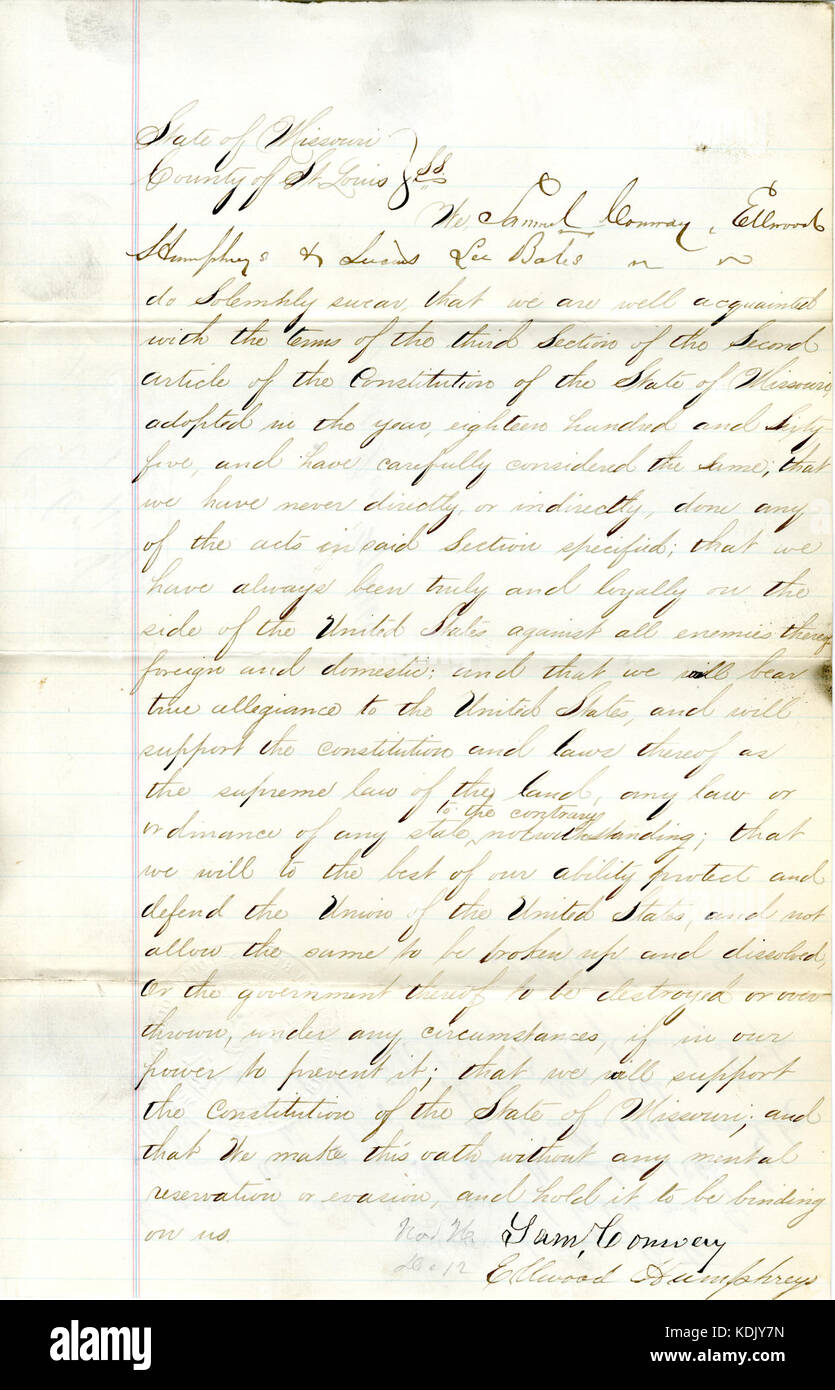 State of Missouri
County of St. Louis } SS
We, Samuel Conway, Ellwood
Humphreys & Lee Bates
do Solemnly swear, that we are well acquainted
with the terms of the third Section of the Second
article of the Constitution of the State of Missouri,
adopted in the year, eighteen hundred and Sixty
five, and have carefully considered the same; that
we have never directly, or indirectly, done any
of the acts in said Section specified; that we
have always been truly and loyally on the
side of the United States against all enemies thereof
foreign and domestic; and that we will bear
true allegiance to the United States, and will
support the constitution and laws thereof as
the supreme law of the land, any law or
to the contrary
ordinance of any state, notwithstanding; that
we will to the best of our ability protect and
defend the Union of the United States, and not
allow the same to be broken up and dissolved,
Or the government thereof to be destroyed or over
thrown, under any circumstances, if in our
power to prevent it; that we will support
the Constitution of the State of Missouri; and
that We make this oath without any mental
reservation or evasion, and hold it to be binding
on us.
Sam, Conway
Ellwood Humphreys
alamy
Image ID: KDJY7N
www.alamy.com